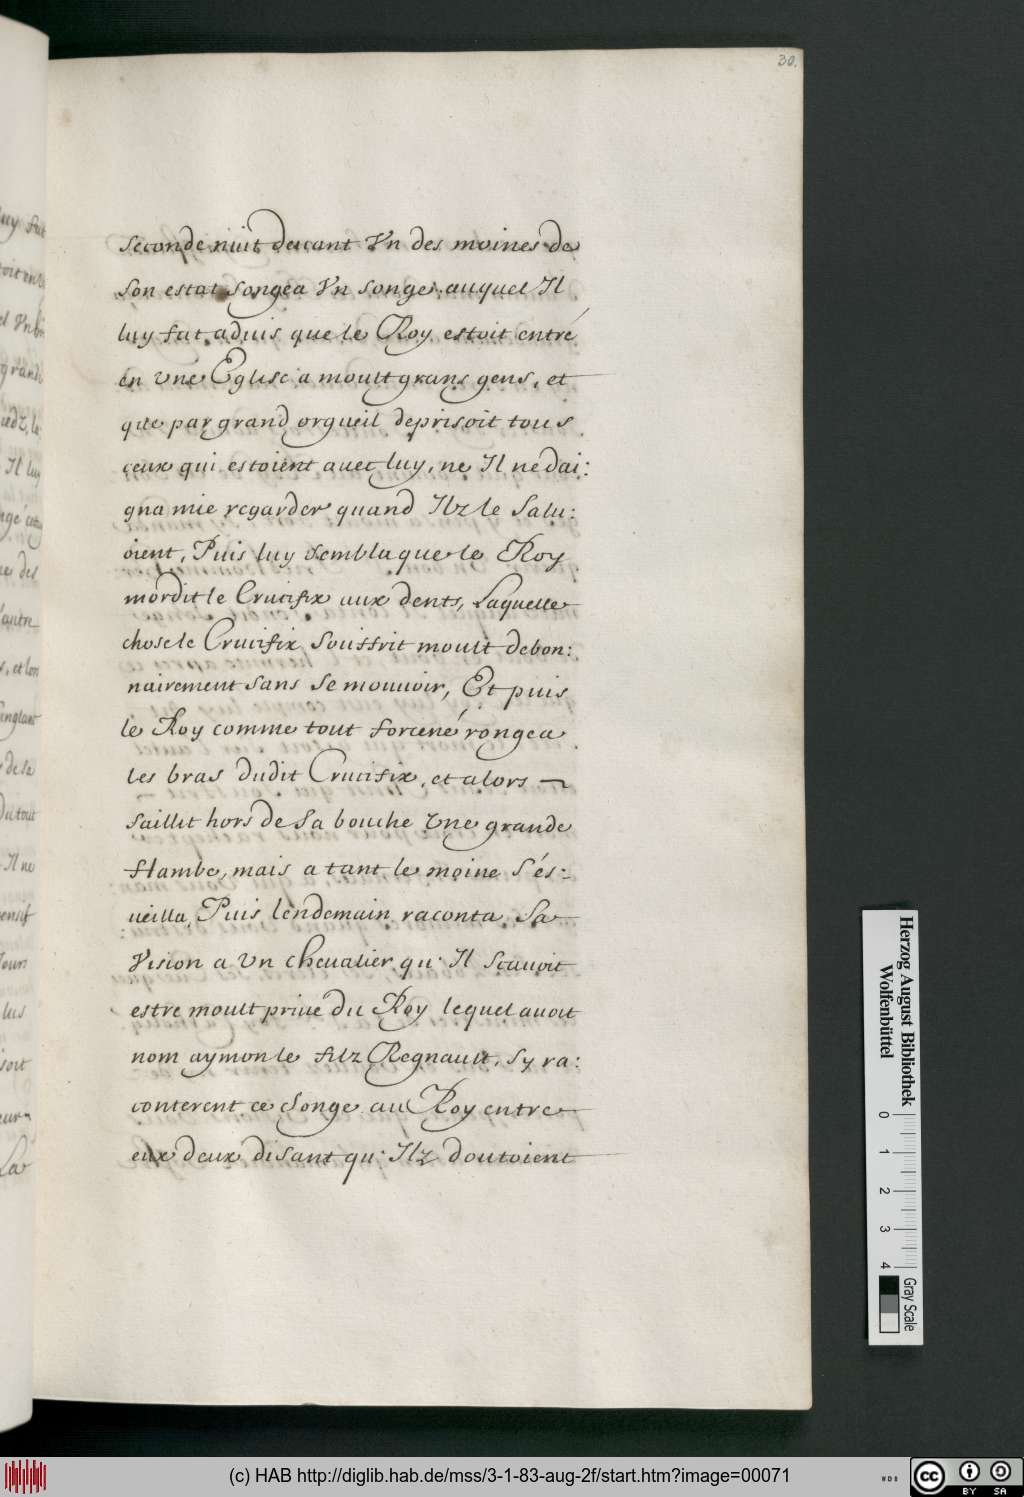 30.
seconde nuit deuant Vn des moines de
son estat songea Vn songe, auquel Il
luy fut aduis que le Roy estoit entré
en vne Eglise a moult grans gens, et
que par grand orgueil deprisoit tous
ceux qui estoient auec luy, ne Il ne dai:
gna mie regarder quand Ilz le salu:
oient, Puis luy sembla que le Roy
mordit le Crucifix aux dents, Laquelle
chose le Crucifix souffrit moult debon:
nairement sans se mouuoir, Et puis
le Roy comme tout forcené rongea
les bras dudit Crucifix, et alors —
saillit hors de sa bouche vne grande
flambe, mais a tant le moine s'és:
ueilla, Puis lendemain raconta sa
Vision a vn cheualier qu' Il scauoit
estre moult priué du Roy lequel auoit
nom aymon le filz Regnault, sy ra:
conterent ce songe au Roy entre
eux deux disant qu' Ilz doutoient
Herzog August Bibliothek
Wolfenbüttel
0 1 2 3 4
Gray Scale
(c) HAB http://diglib.hab.de/mss/3-1-83-aug-2f/start.htm?image=00071
cc BY SA